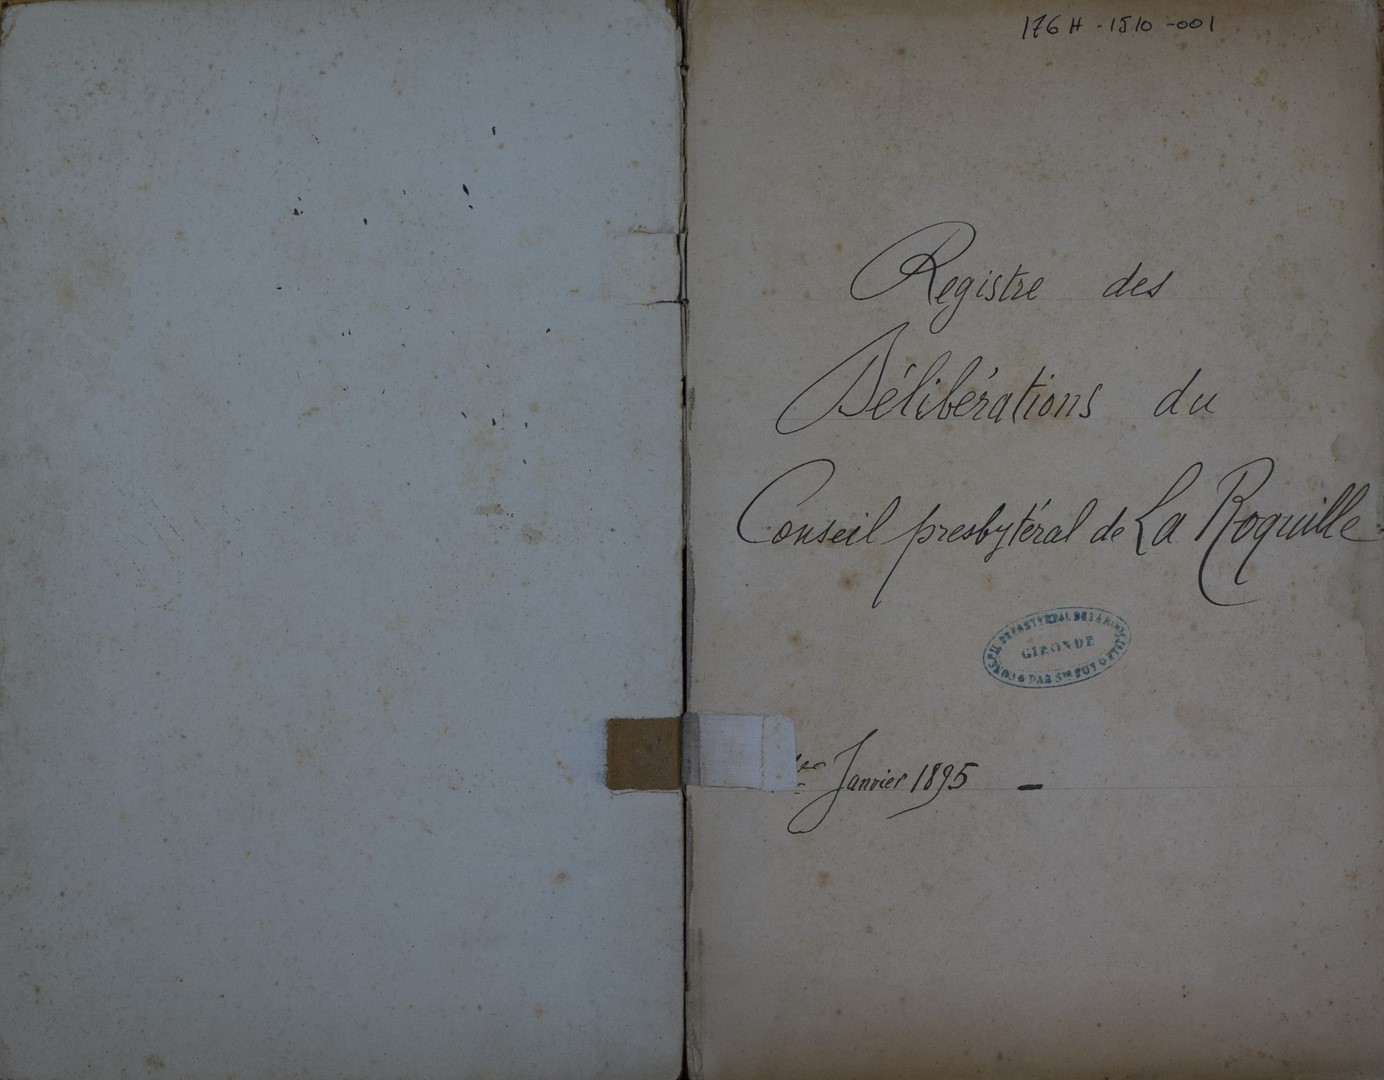 176 H - 1510 - 001
Registre des
Délibérations du
Conseil presbytéral de La Roquille
GIRONDE
PAR Ste FOY
1er Janvier 1895 —